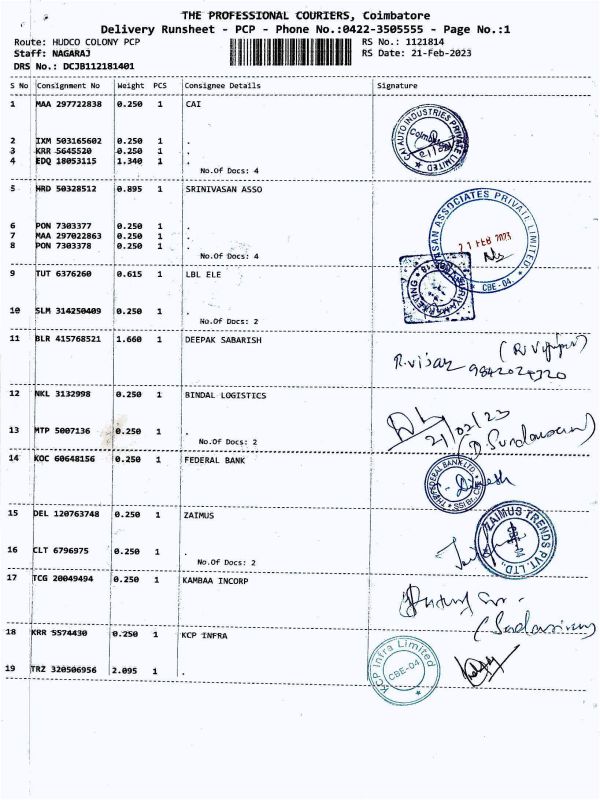 THE PROFESSIONAL COURIERS, Coimbatore
Delivery Runsheet - PCP - Phone No.:0422-3505555 - Page No.:1
Route: HUDCO COLONY PCP RS No.: 1121814
Staff: NAGARAJ RS Date: 21-Feb-2023
DRS No.: DCJB112181401
S No Consignment No Weight PCS Consignee Details Signature
1 MAA 297722838 0.250 1 CAI
CAI AUTO INDUSTRIES PRIVATE LIMITED
2 IXM 503165602 0.250 1 .
3 KRR 5645520 0.250 1 .
4 EDQ 18053115 1.340 1 .
No.Of Docs: 4
5 HRD 50328512 0.895 1 SRINIVASAN ASSO
ASSOCIATES PRIVATE LIMITED
CBE-04
21 FEB 2023
6 PON 7303377 0.250 1 .
7 MAA 297022863 0.250 1 .
8 PON 7303378 0.250 1 .
No.Of Docs: 4
9 TUT 6376260 0.615 1 LBL ELE
10 SLM 314250409 0.250 1 .
No.Of Docs: 2
11 BLR 415768521 1.660 1 DEEPAK SABARISH
R.Vijay
12 NKL 3132998 0.250 1 BINDAL LOGISTICS
21/02/23
13 MTP 5007136 0.250 1 .
No.Of Docs: 2
14 KOC 60648156 0.250 1 FEDERAL BANK
THE FEDERAL BANK LTD.
15 DEL 120763748 0.250 1 ZAIMUS
ZAIMUS TRENDS PVT. LTD.
16 CLT 6796975 0.250 1 .
No.Of Docs: 2
17 TCG 20049494 0.250 1 KAMBAA INCORP
18 KRR 5574430 0.250 1 KCP INFRA
KCP Infra Limited
CBE-04
19 TRZ 320506956 2.095 1 .